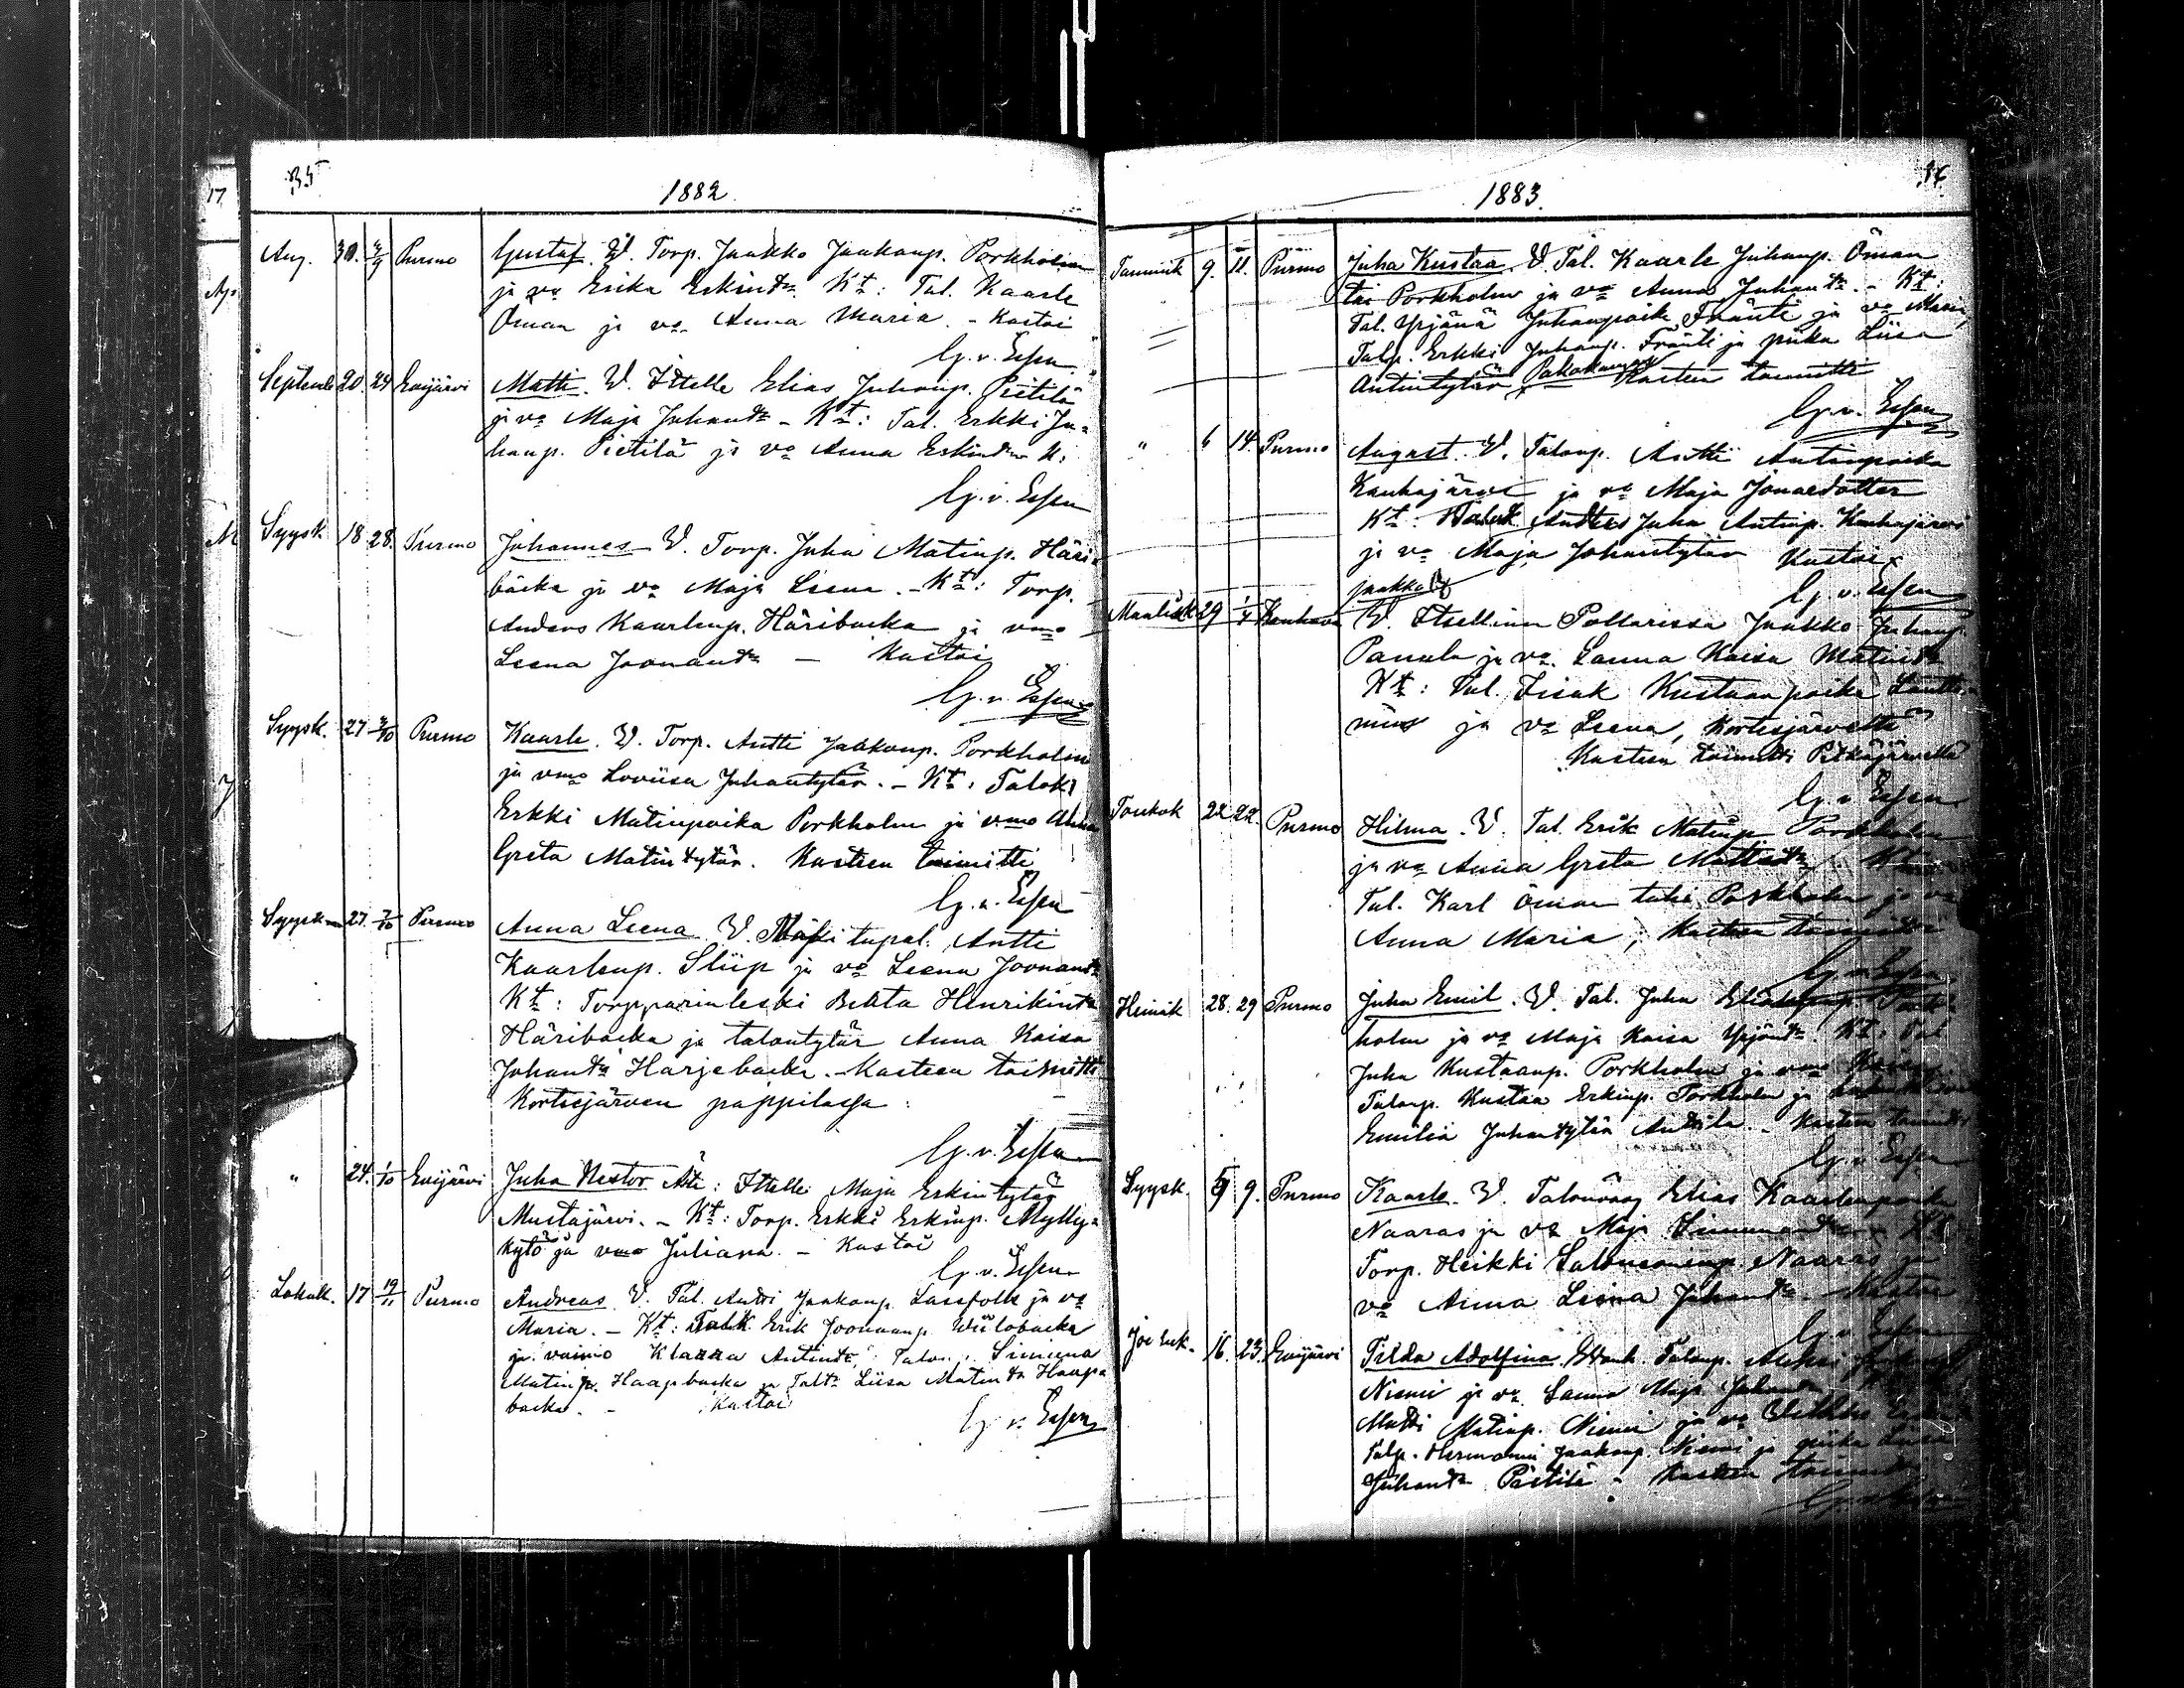 17
35
1882.
Aug. 30. 3/9 Purmo Gustaf. V. Torp. Jaakko Jaakonp. Porkholm
ja vo Erika Erkintr. Kt: Tal. Kaarle
Öman ja vo Anna Maria. - Kastoi
G. v. Essen.
Septemb 20. 24 Evijärvi Matti. V. Itselle Elias Juhanp. Pietilä
ja vo Maja Juhantr - Kt: Tal. Erkki Ju-
hanp. Pietilä ja vo Anna Erkintr K:
G. v. Essen
Syysk 18 28. Purmo Johannes V. Torp. Juha Matinp. Häri-
backa ja vo Maja Leena. - Kt: Torp.
Anders Kaarlenp. Häribacka ja vmo
Leena Joonantr - Kastoi
G. v. Essen
Syysk. 27 3/10 Purmo Kaarle. V. Torp. Antti Jaakonp. Porkholm
ja vmo Loviisa Juhantytär. - Kt: Talok
Erkki Matinpoika Porkholm ja vmo Anna
Greta Matintytär. Kasteen toimitti
G. v. Essen
Syysk 27. 7/10 Purmo Anna Leena V. Mäkitupal. Antti
Kaarlenp. Sliip ja vo Leena Joonantr
Kt: Torpparinleski Beata Henrikintr
Häribacka ja talontytär Anna Kaisa
Johantr Harjebacka. - Kasteen toimitti
Kortesjärven pappilassa:
G. v. Essen
" 24. 1/10 Evijärvi Juha Nestor Äiti: Itselle Maja Erkintytär
Mustajärvi. - Kt: Torp. Erkki Erkinp. Mylly-
kytö ja vmo Juliana. - Kastoi
G. v. Essen
Lokak. 17 19/11 Purmo Andreas V. Tal. Antti Jaakonp. Lassfolk ja vo
Maria. - Kt: Talok. Erik Joonanp. Wiilobacka
ja vaimo Klaara Antintr, Talon. Simuna
Matinp. Haapbacka ja Taltr Liisa Matintr Haapa-
backa. - Kastoi
G. v. Essen
36
1883.
Tammik 9. 11. Purmo Juha Kustaa. V. Tal. Kaarle Juhanp. Öman
tai Porkholm ja vo Anna Juhantr. - Kt:
Tal. Yrjänä Juhanpoika Fränti ja vo Maria,
Talp. Erkki Juhanp. Fränti ja piika Liisa
Antintytär Pakakangas Kasteen toimitti
G. v. Essen
" 6 14. Purmo August. V. Talonp. Antti Antinpoika
Kauhajärvi ja vo Maja Jonaedotter
Kt: Talok. Juha Antinp. Kauhajärvi
ja vo Maja Johantytär Kastoi
G. v. Essen
Jaakko
Maalisk 29 1/4 Kauhava V. Itsellinen Pollarissa Jaakko Juhanp.
Panula ja vo. Sanna Kaisa Matintr
Kt: Tal. Iisak Kustaanpoika
ja vo Leena, Kortesjärveltä
Kasteen toimitti Pitkäjärvellä
G. v. Essen
Toukok 22 22. Purmo Hilma. V. Tal. Erik Matinp Porkholm
ja vo Anna Greta Matintr Kt
Tal. Karl Öman Porkholm ja vo
Anna Maria; Kasteen toimitti
G. v. Essen
Heinäk 28. 29 Purmo Juha Emil. V. Tal. Juha Eliaksenp. Pork-
holm ja vo Maja Kaisa Yrjäntr. Kt: Tal
Juha Kustaanp. Porkholm ja vmo Kaisa
Talonp. Kustaa Erkinp. Porkholm ja
Emilia Juhantytär Anttila. - Kasteen toimitti
G. v. Essen
Syysk. 5 9. Purmo Kaarle. V. Talonvävy Elias Kaarlenpoika
Naaras ja vo Maja Simunantr Kt
Torp. Heikki Salomoninp. Naaras ja
vo Anna Leena Juhantr. Kastoi
G. v. Essen
Jouluk. 16. 23. Evijärvi Tilda Adolfina. Talonp.
Niemi ja vo Sanna Maja Juhantr
Matti Matinp. Niemi ja vo
Talp. Hermanni Jaakonp. Niemi ja piika Liisa
Juhantr Pietilä - Kasteen toimitti
G. v. Essen